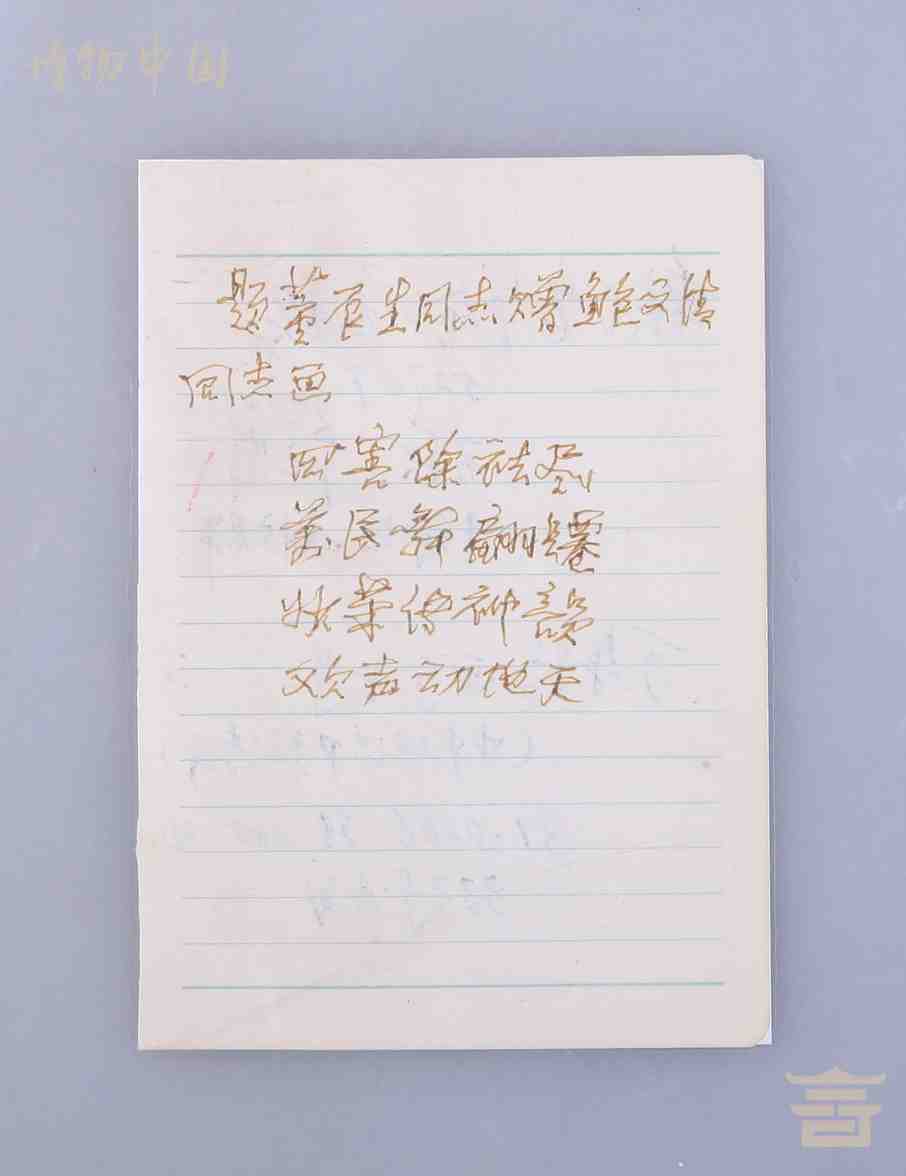 博物中国
题董辰生同志赠鲍文清
同志画
四害除祛尽
万民舞翩跹
妙笔传神韵
欢声动地天